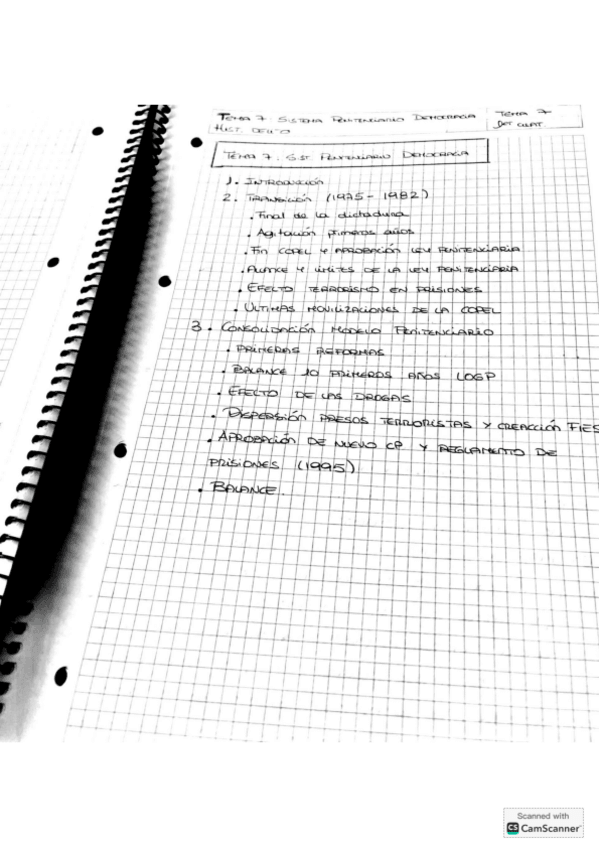 TEMA 7: SISTEMA PENITENCIARIO DEMOCRACIA
HIST. DELITO
TEMA 7
TEMA 7: SIST PENITENCIARIO DEMOCRACIA
1. INTRODUCCIÓN
2. TRANSICIÓN (1975 - 1982)
. Final de la dictadura
. Agitación primeros años
. FIN COPEL Y APROBACIÓN LEY PENITENCIARIA
. AVANCE Y LÍMITES DE LA LEY PENITENCIARIA
. EFECTO TERRORISMO EN PRISIONES
. ULTIMAS MOVILIZACIONES DE LA COPEL
3. CONSOLIDACIÓN MODELO PENITENCIARIO
. PRIMERAS REFORMAS
. BALANCE 10 PRIMEROS AÑOS LOGP
. EFECTO DE LAS DROGAS
. DISPERSIÓN PRESOS TERRORISTAS Y CREACCIÓN FIES
. APROBACIÓN DE NUEVO CP Y REGLAMENTO DE
PRISIONES (1995)
. BALANCE.
Scanned with
CS CamScanner